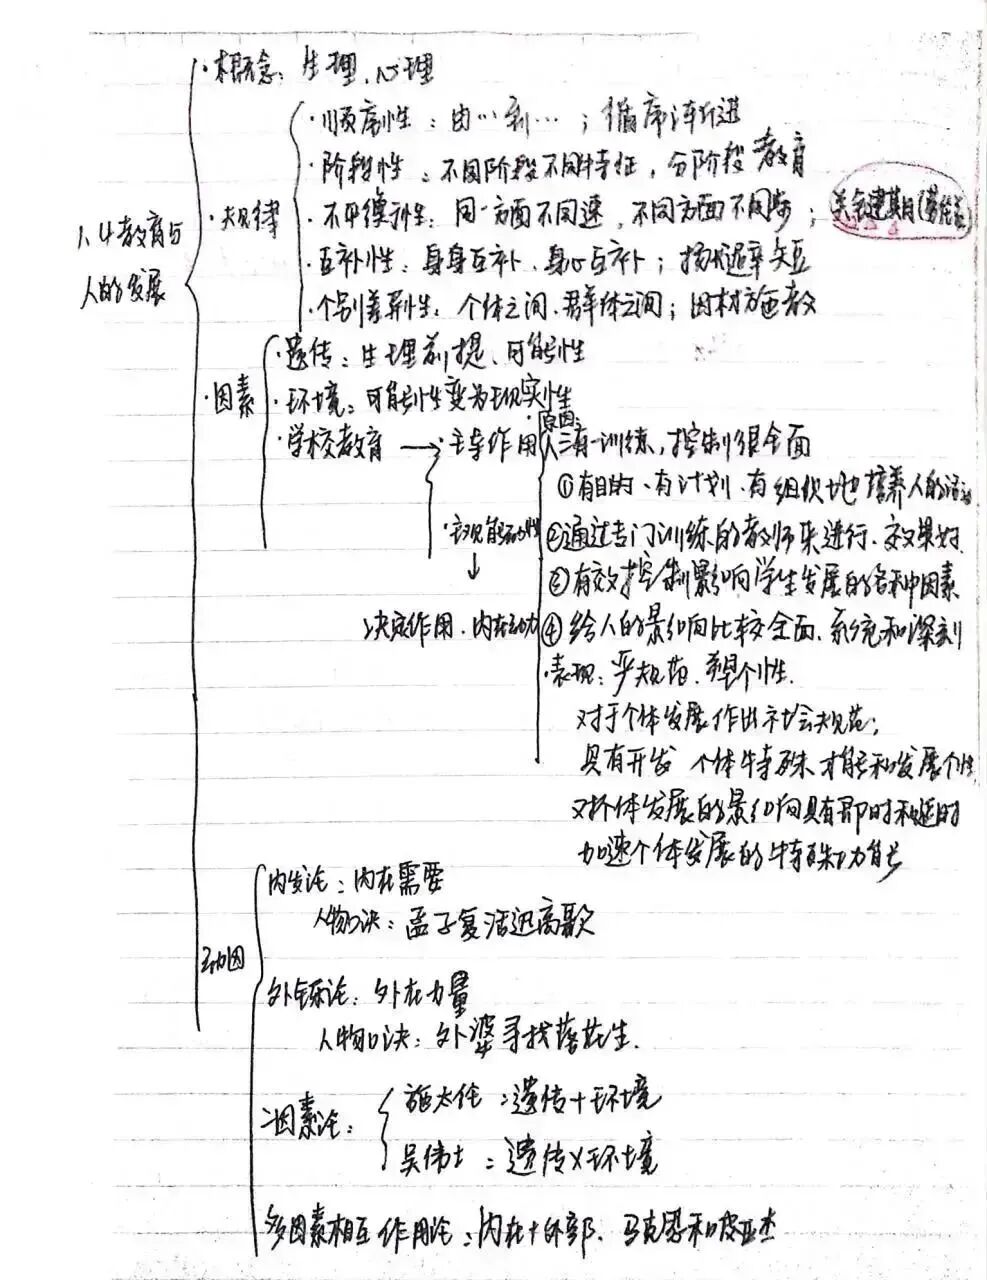 ·概念：生理、心理
·顺序性：由…到…；循序渐进
·阶段性：不同阶段不同特征，分阶段教育
·规律
·不平衡性：同一方面不同速，不同方面不同步；关键期(劳伦兹)
人4教育与
人的发展
·互补性：身身互补、身心互补；扬长避短
·个别差异性：个体之间、群体之间；因材施教
·因素
·遗传：生理前提、可能性
·环境：可能性变为现实性
·学校教育→·主导作用
·原因：
三有一训练，控制很全面
①有目的、有计划、有组织地培养人的活动
②通过专门训练的教师来进行、效果好
·主观能动性
↓
③有效控制影响学生发展的各种因素
决定作用、内在动力
④给人的影响比较全面、系统和深刻
·表现：严规范、塑个性.
对于个体发展作出社会规范；
具有开发 个体特殊才能和发展个性
对个体发展的影响具有即时和延时
加速个体发展的特殊功能
动因
内发论：内在需要
人物口诀：孟子复活迅高歌
外铄论：外在力量
人物口诀：外婆寻找落花生.
二因素论：
施太伦：遗传+环境
吴伟士：遗传×环境
多因素相互作用论：内在+外部、马克思和皮亚杰